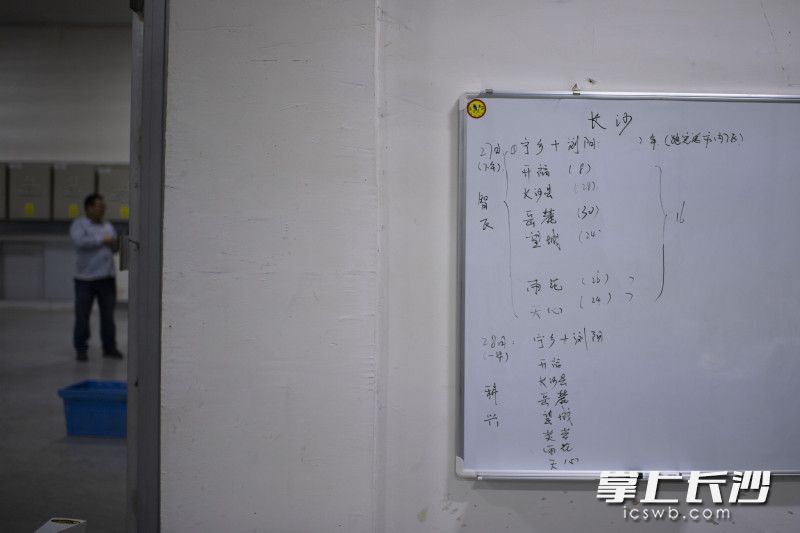 长沙
27日 ① 宁乡+浏阳
开福 (8)
长沙县 (28)
智飞
岳麓 (30)
望城 (24
16
雨花 (26)
天心 (24)
28日: 宁乡+浏阳
(一车)
开福
长沙县
科兴
岳麓
望城
雨花
天心
掌上长沙
icswb.com